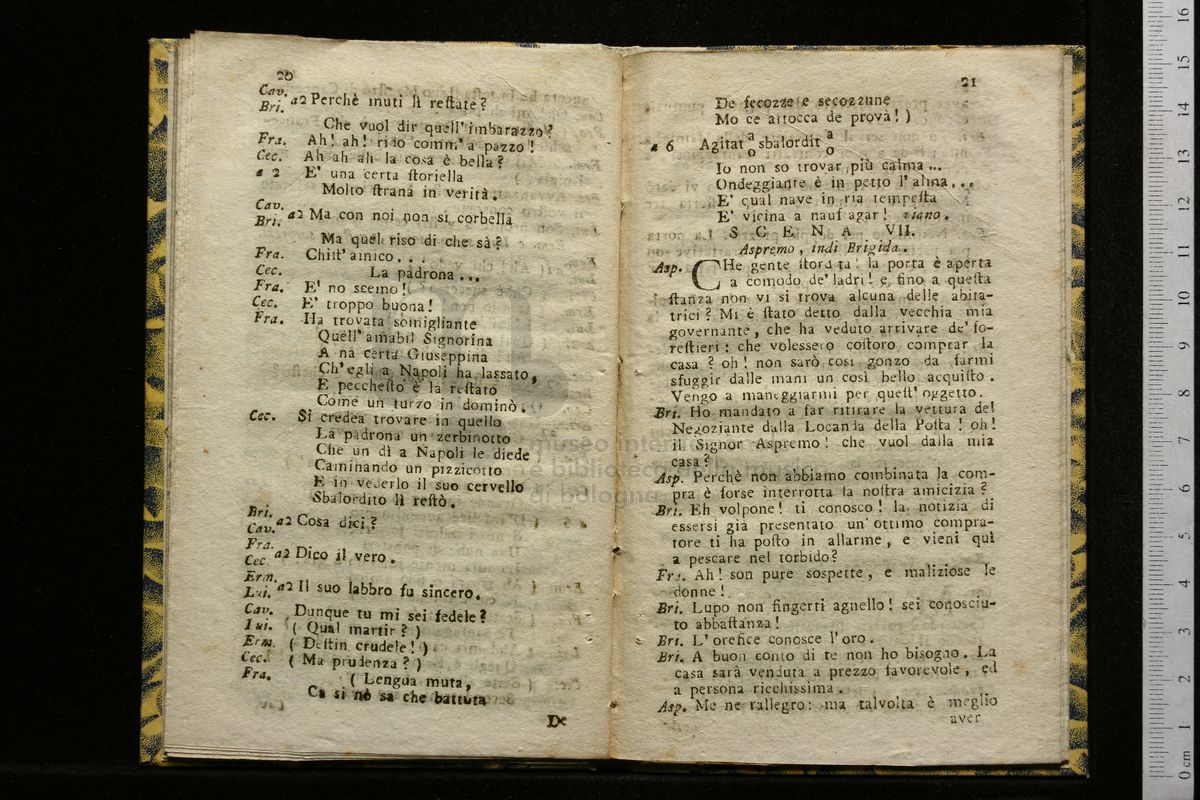 20
Cav.
Bri. a2 Perchè muti ſi reſtate?
Che vuol dir quell' imbarazzo?
Fra. Ah! ah! rido comm' a pazzo!
Cec. Ah ah ah la cosa è bella?
a 2 E' una certa ſtoriella
Molto ſtrana in verità.
Cav.
Bri. a2 Ma con noi non si corbella
Ma quel riso di che sà?
Fra. Chiſt' amico...
Cec. La padrona...
Fra. E' no scemo!
Cec. E' troppo buona!
Fra. Ha trovata somigliante
Quell' amabil Signorina
A na certa Giuseppina
Ch' egli a Napoli ha lassato,
E pecchefto è la reſtato
Come un turzo in dominò.
Cec. Si credea trovare in quello
La padrona un zerbinotto
Che un dì a Napoli le diede
Caminando un pizzicotto
E in vederlo il suo cervello
Sbalordito lì reſtò.
Bri.
Cav. a2 Cosa dici?
Fra.
Cec. a2 Dico il vero.
Erm.
Lui. a2 Il suo labbro fu sincero.
Cav. Dunque tu mi sei fedele?
Lui. ( Qual martir? )
Erm. ( Deſtin crudele! )
Cec. ( Ma prudenza? )
Fra. ( Lengua muta,
Ca si nò sa che battuta
De
21
De fecozze e secozzune
Mo ce attocca de provà! )
a 6 Agitat a o sbalordit a o
Io non so trovar più calma...
Ondeggiante è in petto l' alma...
E' qual nave in ria tempeſta
E' vicina a naufragar! viano.
SCENA VII.
Aspremo, indi Brigida.
Asp. CHe gente ſtordita! la porta è aperta
a comodo de' ladri! e fino a queſta
ſtanza non vi si trova alcuna delle abita-
trici? Mi è ſtato detto dalla vecchia mia
governante, che ha veduto arrivare de' fo-
reſtieri: che volessero coſtoro comprar la
casa? oh! non sarò così gonzo da farmi
sfuggir dalle mani un così bello acquiſto.
Vengo a maneggiarmi per queſt' oggetto.
Bri. Ho mandato a far ritirare la vettura del
Negoziante dalla Locanda della Poſta! oh!
il Signor Aspremo! che vuol dalla mia
casa?
Asp. Perchè non abbiamo combinata la com-
pra è forse interrotta la noſtra amicizia?
Bri. Eh volpone! ti conosco! la notizia di
essersi già presentato un' ottimo compra-
tore ti ha poſto in allarme, e vieni quì
a pescare nel torbido?
Fra. Ah! son pure sospette, e maliziose le
donne!
Bri. Lupo non fingerti agnello! sei conosciu-
to abbaſtanza!
Bri. L' orefice conosce l' oro.
Bri. A buon conto di te non ho bisogno. La
casa sarà venduta a prezzo favorevole, ed
a persona ricchissima.
Asp. Me ne rallegro: ma talvolta è meglio
aver
museo internazionale
e biblioteca della musica
di bologna
0 cm 1 2 3 4 5 6 7 8 9 10 11 12 13 14 15 16